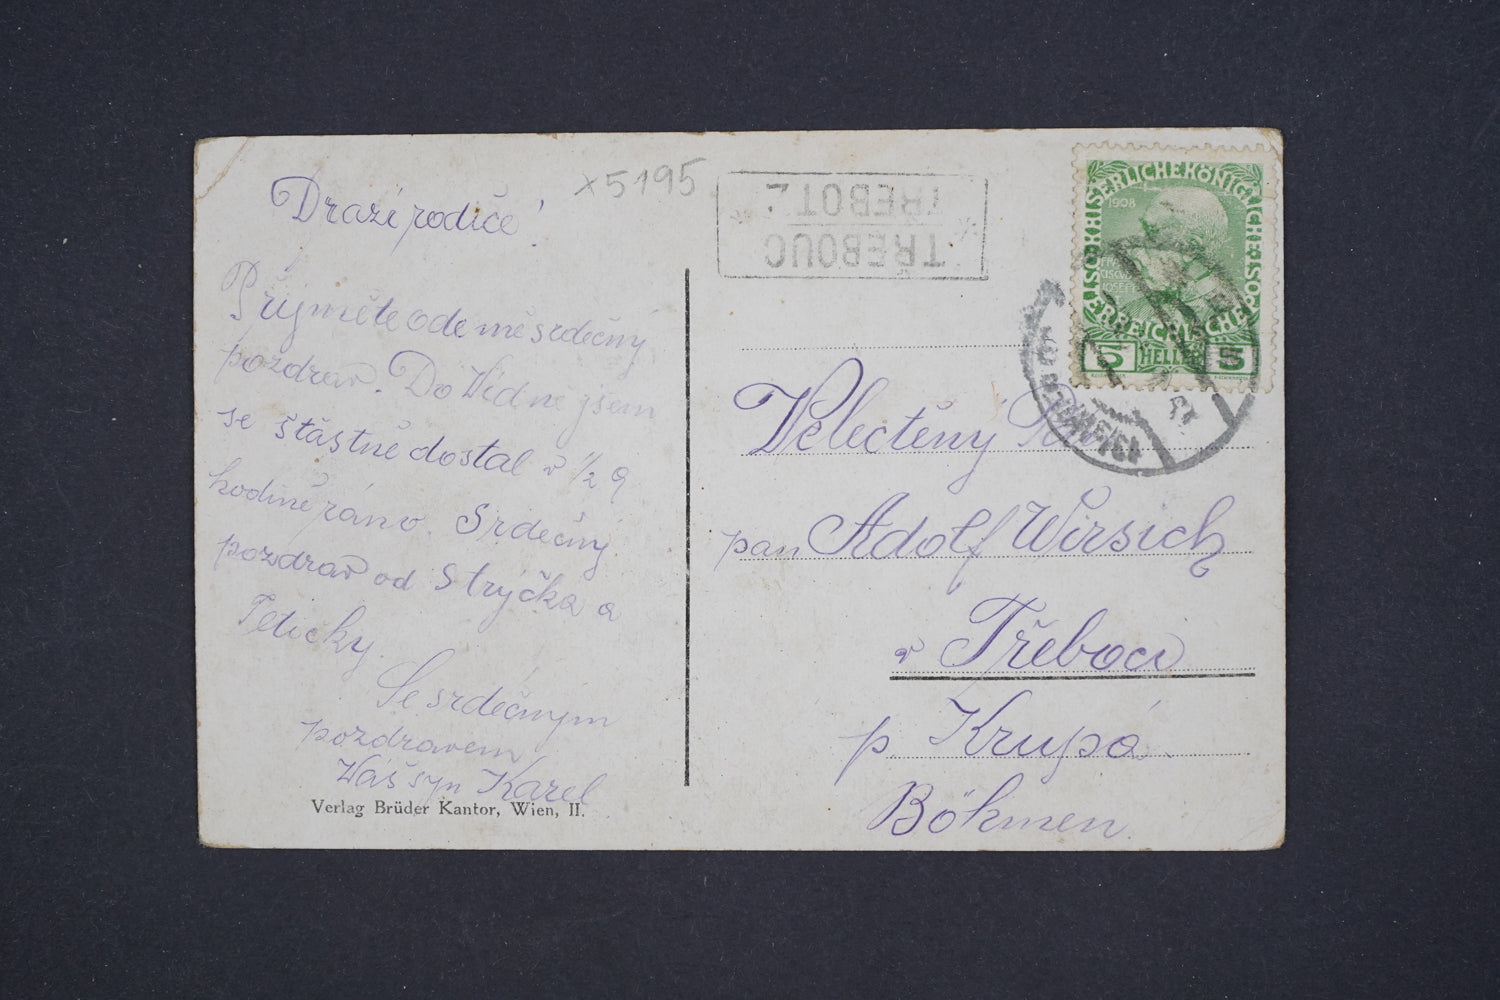 x5195
Drazí rodiče!
Přijměte ode mě srdečný
pozdrav. Do Vídně jsem
se šťastně dostal v 1/2 9
hodině ráno. Srdečný
pozdrav od Strýčka a
Tetičky.
Se srdečným
pozdravem
Váš syn Karel
Verlag Brüder Kantor, Wien, II.
TŘEBOUC
TŘEBOTZ
KAISERLICHE KÖNIGLICHE ÖSTERREICHISCHE POST
1908
FRANCISCVS JOSEPH I
5 HELLER 5
Velectěný Pán
pan Adolf Wirsich
v Třeboci
p Krupá
Böhmen.